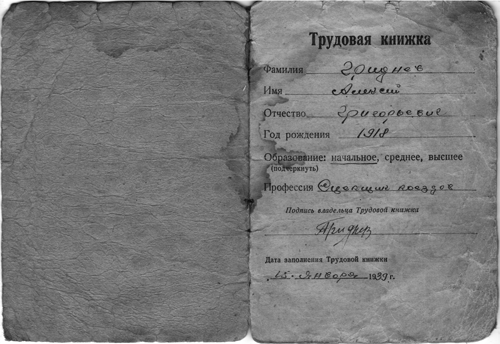 Трудовая книжка
Фамилия Гриднев
Имя Алексей
Отчество Григорьевич
Год рождения 1918
Образование: начальное, среднее, высшее
(подчеркнуть)
Профессия Сцепщик поездов
Подпись владельца Трудовой книжки
Дата заполнения Трудовой книжки
15 января 1939 г.